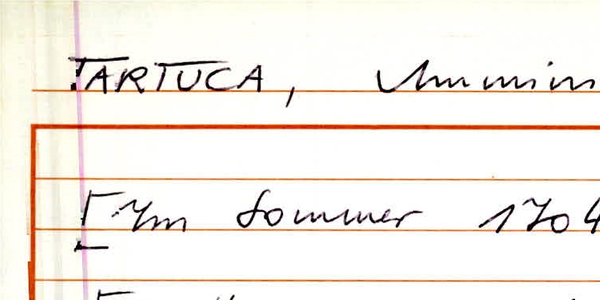 TARTUCA,
[Im Sommer 1704